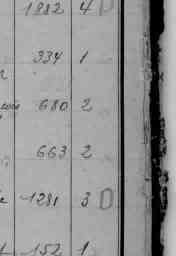 1882 4
334 1
680 2
663 2
1281 3
152 1